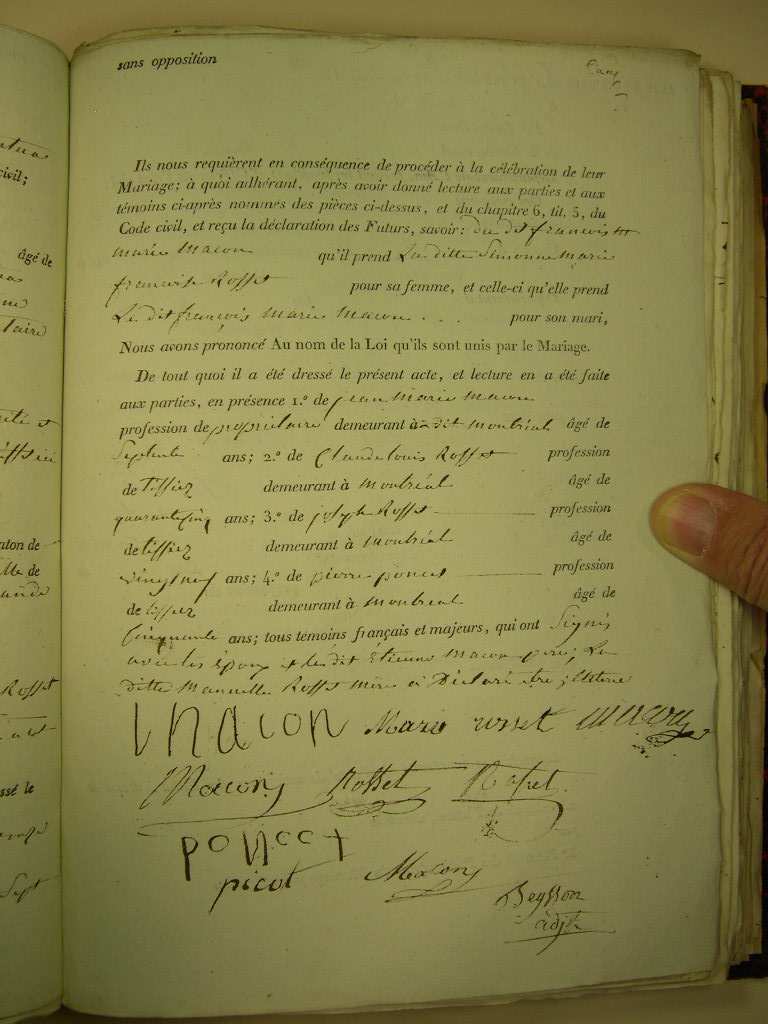 sans opposition
Ils nous requièrent en conséquence de procéder à la célébration de leur
Mariage; à quoi adhérant, après avoir donné lecture aux parties et aux
témoins ci-après nommés des pièces ci-dessus, et du chapitre 6, tit. 5, du
Code civil, et reçu la déclaration des Futurs, savoir: du dit françois
marie Macon qu'il prend La ditte Simonne Marie
francoise Rosset pour sa femme, et celle-ci qu'elle prend
Le dit françois Marie Macon . . . pour son mari,
Nous avons prononcé Au nom de la Loi qu'ils sont unis par le Mariage.
De tout quoi il a été dressé le présent acte, et lecture en a été faite
aux parties, en présence 1.º de jean Marie Macon
profession de propriétaire demeurant à dit Montréal âgé de
Septente ans; 2.º de Claude louis Rosset profession
de tissiez demeurant à Montréal âgé de
quarante cinq ans; 3.º de joseph Rosset profession
de tissiez demeurant à Montréal âgé de
vingt neuf ans; 4.º de pierre poncet profession
de tissiez demeurant à Montréal âgé de
Cinquante ans; tous témoins français et majeurs, qui ont Signés
avec les Époux et le dit Étienne Macon père, La
ditte Rosset Mère a Déclaré être illiterée
Macon Marie rosset Macon
Macon Rosset Rosset
poncet
picot Macon
Beysson
adjt
âgé de
civil;